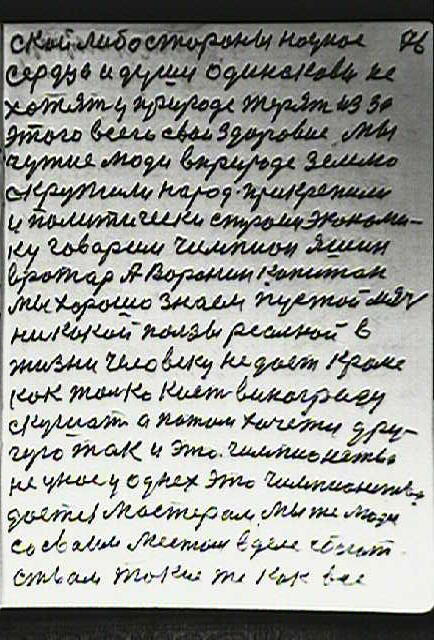 ской либо стороны научное 76
сердце и души одинакова не
хотят у природе терят из за
этого всего свое здоровие мы
чужие люди в природе землю
скружили народ прикрепили
и политически строим экономи-
ку говорим чемпион Яшин
вротар А Воронин капитан
мы хорошо знаем пустой мяч
никакой ползы реалной в
жизни человеку не дает кроме
как толко кист винограду
скушат а потом хочетси дру-
гую так и это чемпионство
не уное у однех это чемпионство
дается мастерам, мы же люди
со своем местом в деле
ствам токие же как все